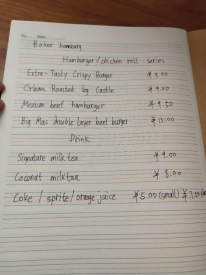 Baker hamburg
Hamburger/chicken roll series
Extra-Tasty Crispy Burger ¥ 9.00
Orleans Roasted leg Castle ¥ 9.00
Mexican beef hamburger ¥ 9.50
Big Mac double layer beef burger ¥ 15.00
Drink
Signature milk tea ¥ 9.00
Coconut milk tea ¥ 8.00
Coke / sprite / orange juice ¥ 5.00 (small) ¥ 7.00